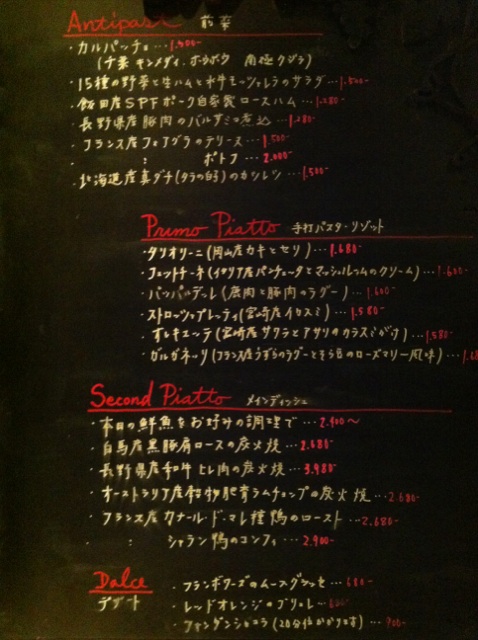 Antipasti 前菜
・カルパッチョ…1.500-
(千葉 キンメダイ、ホウボウ 南極クジラ)
・15種の野菜と生ハムと水牛モッツァレラのサラダ…1.500-
・飯田産SPFポーク自家製ロースハム…1.280-
・長野県産豚肉のバルサミコ煮込…1.280-
・フランス産フォアグラのテリーヌ…1.500-
・ 〃 ポトフ…2.000-
・北海道産真ダチ(タラの白子)のカツレツ…1.500-
Primo Piatto 手打パスタ・リゾット
・タリオリーニ(岡山産カキとセリ)…1.680-
・フェットチーネ(イタリア産パンチェッタとマッシュルームのクリーム)…1.600-
・パッパルデッレ(鹿肉と豚肉のラグー)…1.600-
・ストロッツァプレッティ(宮崎産イカスミ)…1.580-
・オレキエッテ(宮崎産サワラとアサリのカラスミがけ)…1.580-
・ガルガネッリ(フランス産うずらのラグーとそら豆のローズマリー風味)…
Second Piatto メインディッシュ
・本日の鮮魚をお好みの調理で…2.400〜
・白馬産黒豚肩ロースの炭火焼…2.680-
・長野県産和牛ヒレ肉の炭火焼…3.980-
・オーストラリア産穀物肥育ラムチョップの炭火焼…2.680-
・フランス産カナール・ド・マレ種鴨のロースト…2.680-
・ 〃 シャラン鴨のコンフィ…2.900-
Dolce デザート
・フランボワーズのムースグラッセ…680-
・レッドオレンジのブリュレ…
・フォンダンショコラ(20分位かかります)…700-